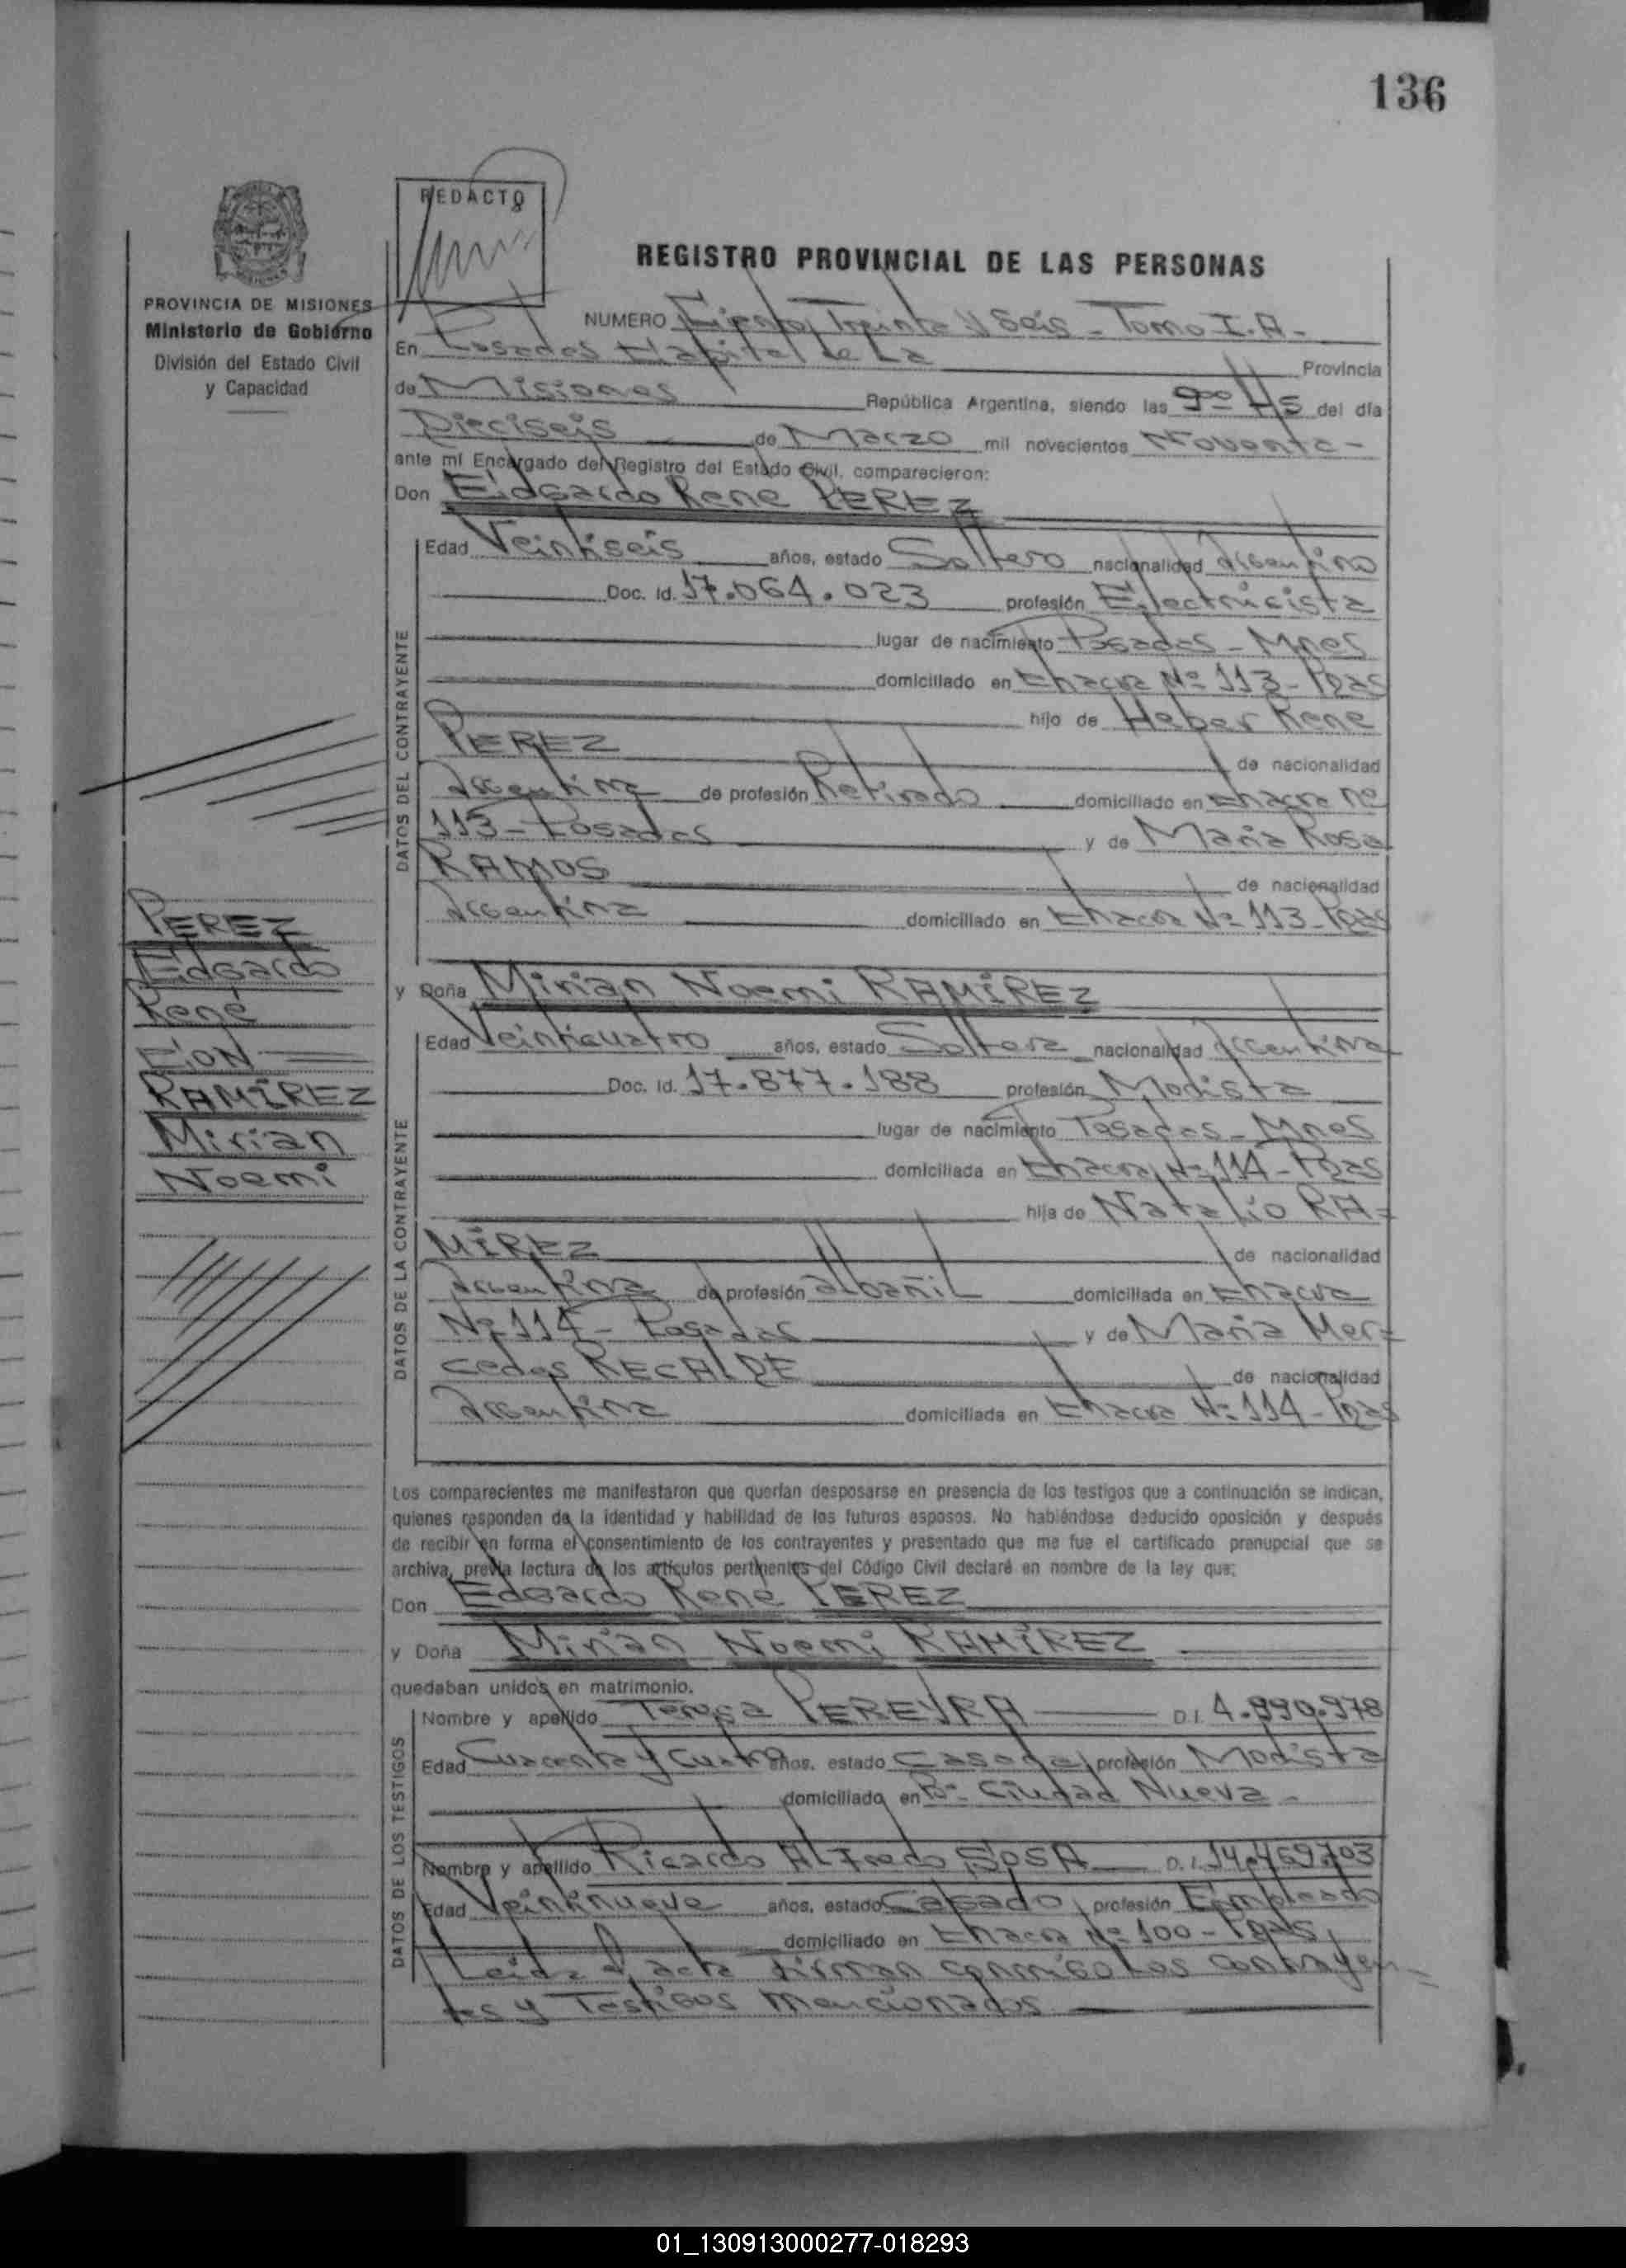 136
REDACTO
REGISTRO PROVINCIAL DE LAS PERSONAS
PROVINCIA DE MISIONES
Ministerio de Gobierno
División del Estado Civil
y Capacidad
NUMERO Ciento Treinta y Seis - Tomo I.A.-
En Posadas Capital de La Provincia
de Misiones República Argentina, siendo las 9 00 Hs del día
Dieciseis de Marzo mil novecientos Noventa -
ante mí Encargado del Registro del Estado Civil, comparecieron:
Don Edgardo Rene PEREZ
DATOS DEL CONTRAYENTE
Edad Veintiseis años, estado Soltero nacionalidad Argentina
Doc. Id. 17.064.023 profesión Electricista
lugar de nacimiento Posadas - Mnes
domiciliado en Chacra Nº 113 - Pdas
hijo de Heber Rene
PEREZ de nacionalidad
Argentina de profesión Retirado domiciliado en Chacra Nº
113 - Posadas y de Maria Rosa
RAMOS de nacionalidad
Argentina domiciliado en Chacra Nº 113 - Pdas
PEREZ
Edgardo
René
CON
RAMIREZ
Mirian
Noemi
y Doña Mirian Noemi RAMIREZ
DATOS DE LA CONTRAYENTE
Edad Veinticuatro años, estado Soltera nacionalidad Argentina
Doc. Id. 17.877.188 profesión Modista
lugar de nacimiento Posadas - Mnes
domiciliada en Chacra Nº 114 - Pdas
hija de Natalio RA=
MIREZ de nacionalidad
Argentina de profesión albañil domiciliada en Chacra
Nº 114 - Posadas y de Maria Mer=
cedes RECALDE de nacionalidad
Argentina domiciliada en Chacra Nº 114 - Pdas
Los comparecientes me manifestaron que querían desposarse en presencia de los testigos que a continuación se indican,
quienes responden de la identidad y habilidad de los futuros esposos. No habiéndose deducido oposición y después
de recibir en forma el consentimiento de los contrayentes y presentado que me fue el certificado prenupcial que se
archiva, previa lectura de los artículos pertinentes del Código Civil declaré en nombre de la ley que:
Don Edgardo René PEREZ
y Doña Mirian Noemi RAMIREZ
quedaban unidos en matrimonio.
DATOS DE LOS TESTIGOS
Nombre y apellido Teresa PEREYRA D.I. 4.990.978
Edad Cuarenta y Cuatro años, estado Casada profesión Modista
domiciliado en Bº Ciudad Nueva -
Nombre y apellido Ricardo Alfredo SOSA D.I. 14.469.703
Edad Veintinueve años, estado Casado profesión Empleado
domiciliado en Chacra Nº 100 - Pdas
Leida el acta Firman conmigo Los contrayen-
tes y Testigos mencionados
01_130913000277-018293